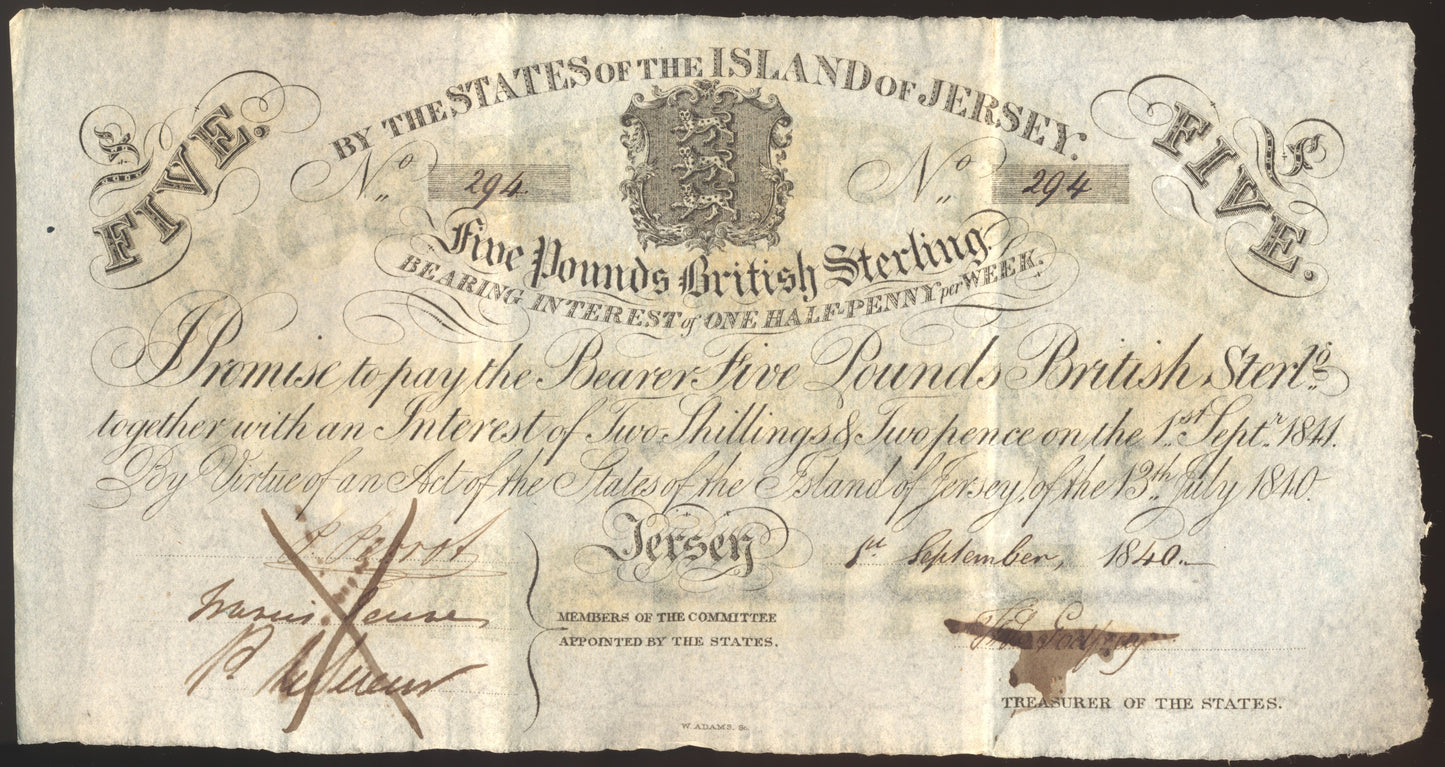 BY THE STATES OF THE ISLAND OF JERSEY.
£ FIVE.
£ FIVE.
No. 294
No. 294
Five Pounds British Sterling
BEARING INTEREST of ONE HALF-PENNY per WEEK.
I Promise to pay the Bearer Five Pounds British Sterlg.
together with an Interest of Two Shillings & Two pence on the 1st Septr. 1841.
By Virtue of an Act of the States of the Island of Jersey, of the 13th July 1840.
Jersey 1st September, 1840.
MEMBERS OF THE COMMITTEE
APPOINTED BY THE STATES.
TREASURER OF THE STATES.
W. ADAMS, Sc.